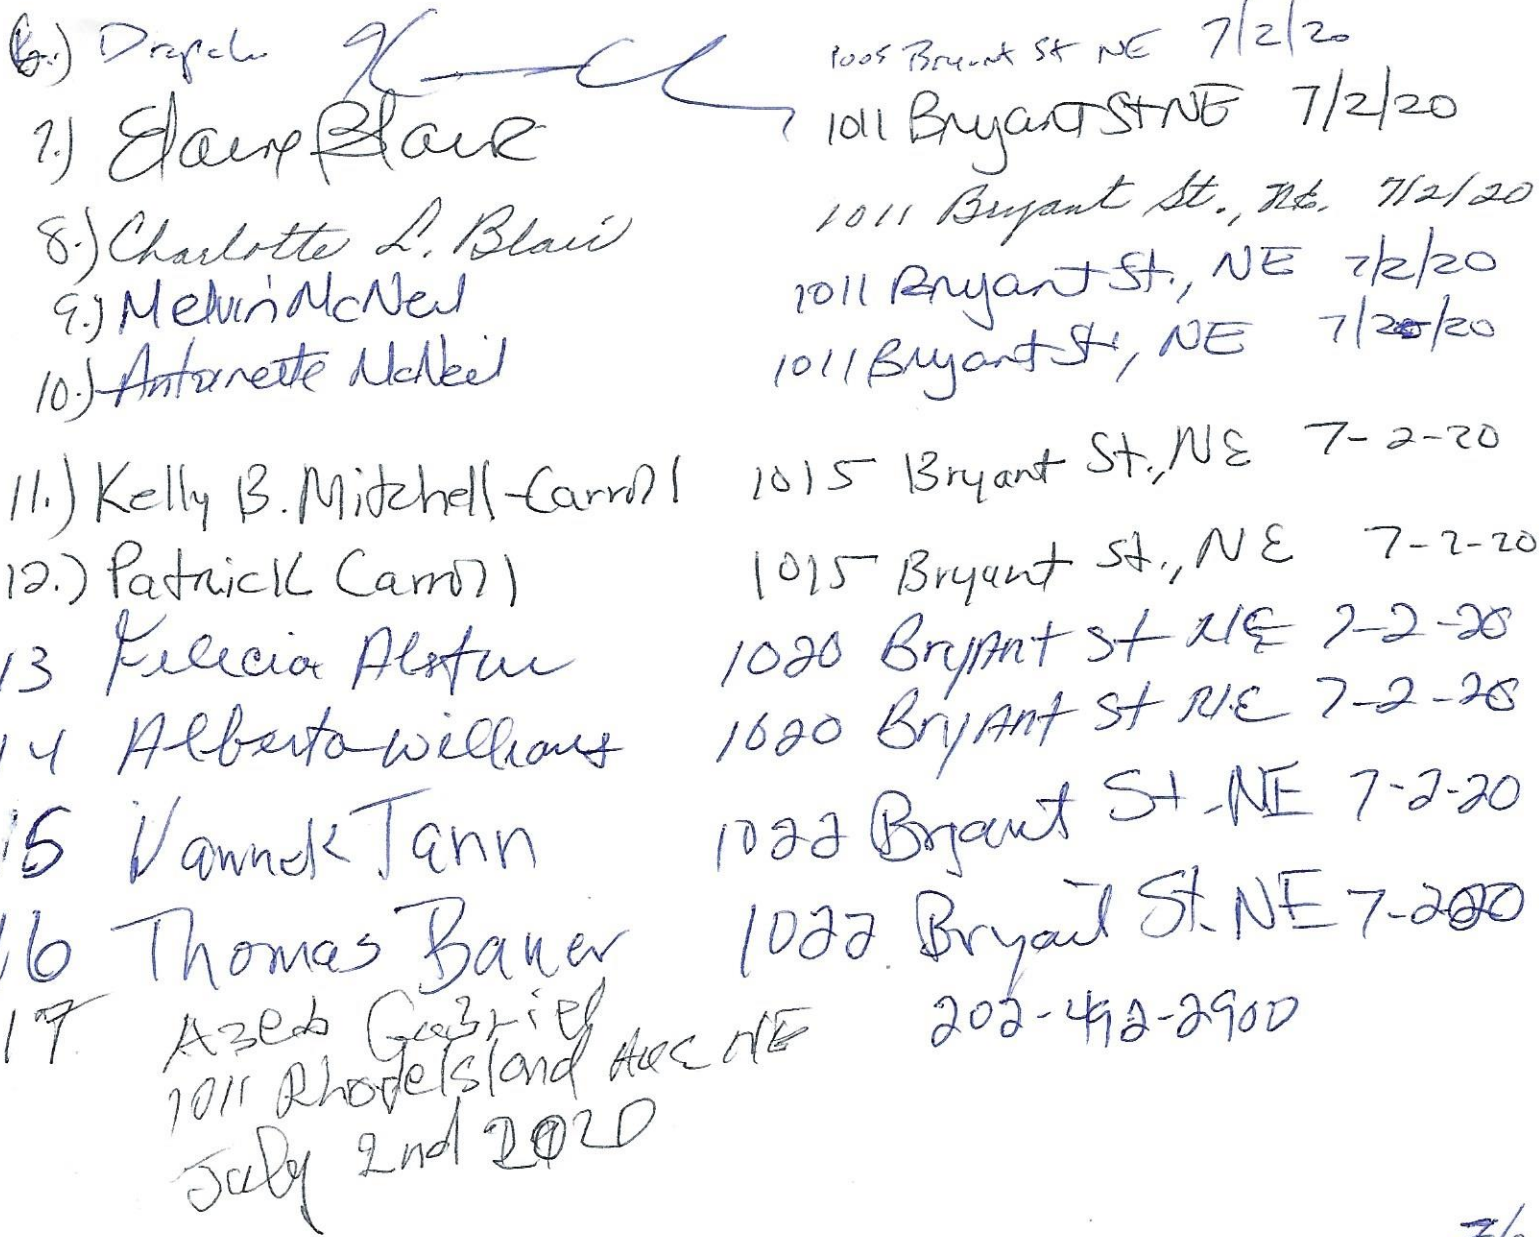 6.) 1005 Bryant St NE 7/2/20
7.) Elaine Blair 1011 Bryant St NE 7/2/20
8.) Charlotte L. Blair 1011 Bryant St., NE. 7/2/20
9.) Melvin McNeil 1011 Bryant St., NE 7/2/20
10.) Antoinette McNeil 1011 Bryant St., NE 7/2/20
11.) Kelly B. Mitchell-Carroll 1015 Bryant St., NE 7-2-20
12.) Patrick Carroll 1015 Bryant St., NE 7-2-20
13 Felecia Alston 1020 Bryant St NE 7-2-20
14 Alberta Williams 1020 Bryant St NE 7-2-20
15 Tann 1022 Bryant St. NE 7-2-20
16 Thomas Bauer 1022 Bryant St. NE 7-2-20
17 Azeb Gabriel 202-492-2900
1011 Rhode Island Ave NE
July 2nd 2020